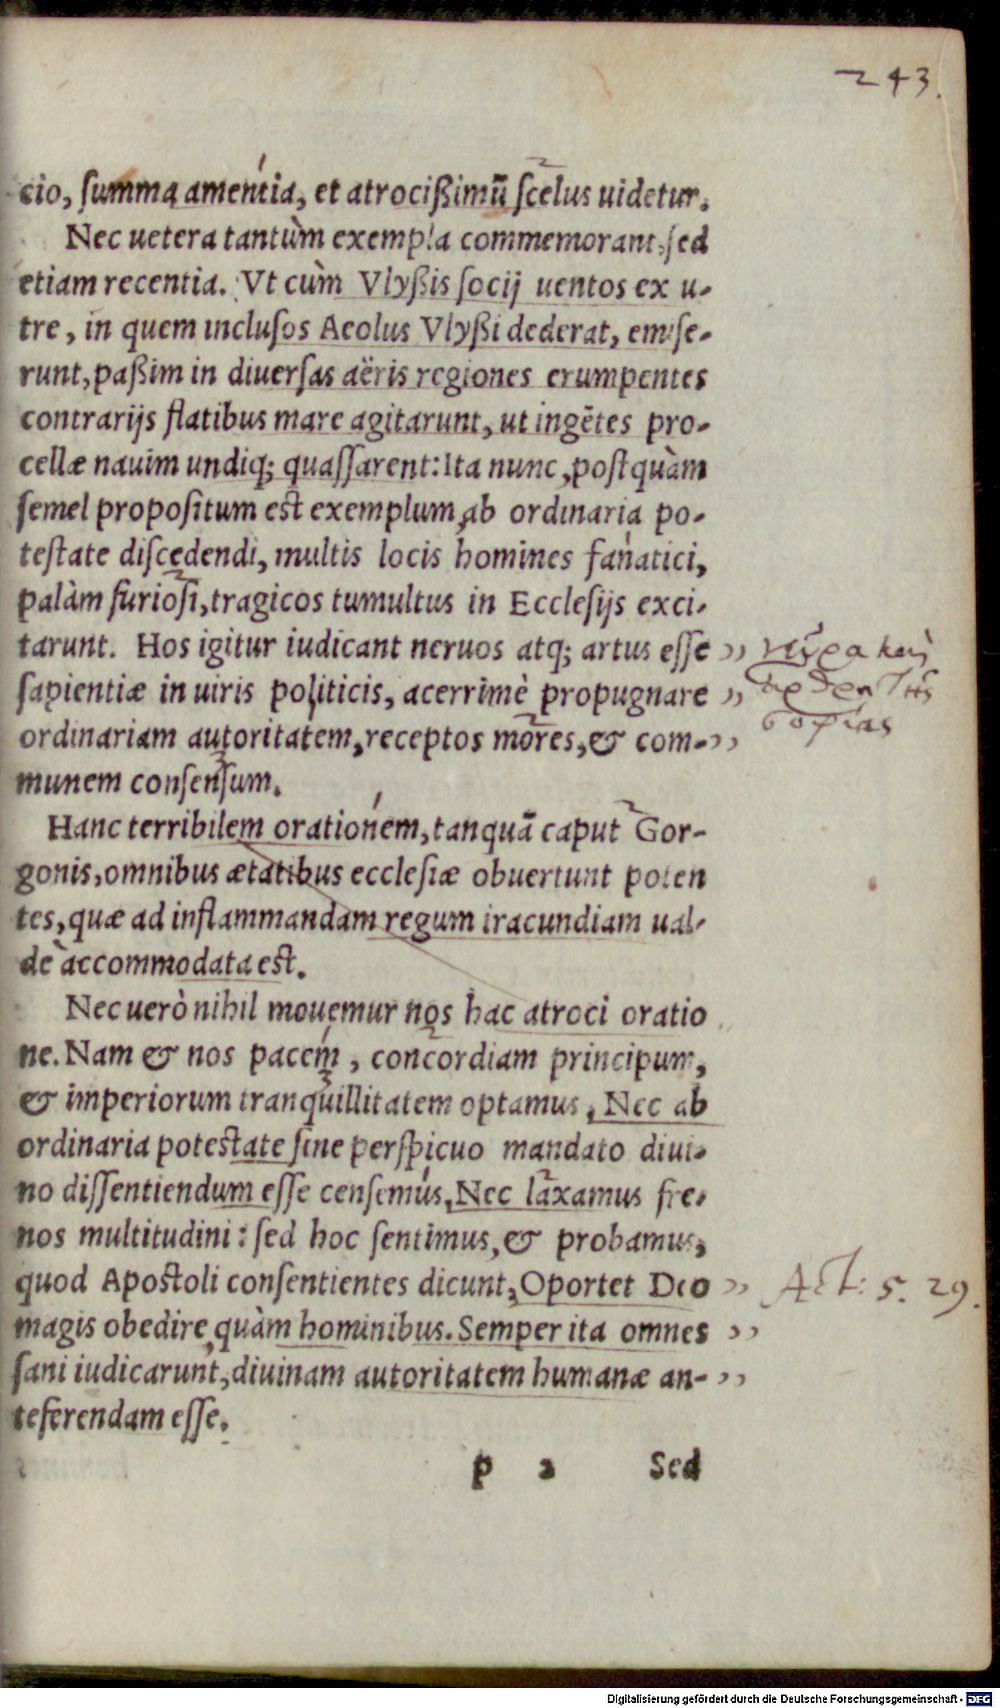 243.
cio, summa amentia, et atrocißimū scelus uidetur.
Nec uetera tantùm exempla commemorant, sed
etiam recentia. Vt cùm Vlyßis socij uentos ex u-
tre, in quem inclusos Aeolus Vlyßi dederat, emise-
runt, paßim in diuersas aëris regiones erumpentes
contrarijs flatibus mare agitarunt, ut ingētes pro-
cellæ nauim undiq; quassarent: Ita nunc, postquàm
semel propositum est exemplum, ab ordinaria po-
testate discedendi, multis locis homines fanatici,
palàm furiosi, tragicos tumultus in Ecclesijs exci-
tarunt. Hos igitur iudicant neruos atq; artus esse
sapientiæ in uiris politicis, acerrimè propugnare
ordinariam autoritatem, receptos mores, & com-
munem consensum.
νεῦρα καὶ
ἄρθρα τῆς
σοφίας
Hanc terribilem orationem, tanquā caput Gor-
gonis, omnibus ætatibus ecclesiæ obuertunt poten
tes, quæ ad inflammandam regum iracundiam ual-
de accommodata est.
Nec uerò nihil mouemur nos hac atroci oratio
ne. Nam & nos pacem, concordiam principum,
& imperiorum tranquillitatem optamus, Nec ab
ordinaria potestate sine perspicuo mandato diui-
no dissentiendum esse censemus, Nec laxamus fre-
nos multitudini: sed hoc sentimus, & probamus,
quod Apostoli consentientes dicunt, Oportet Deo
magis obedire, quàm hominibus. Semper ita omnes
sani iudicarunt, diuinam autoritatem humanæ an-
teferendam esse.
Act: 5. 29.
p 2 Sed
Digitalisierung gefördert durch die Deutsche Forschungsgemeinschaft - DFG